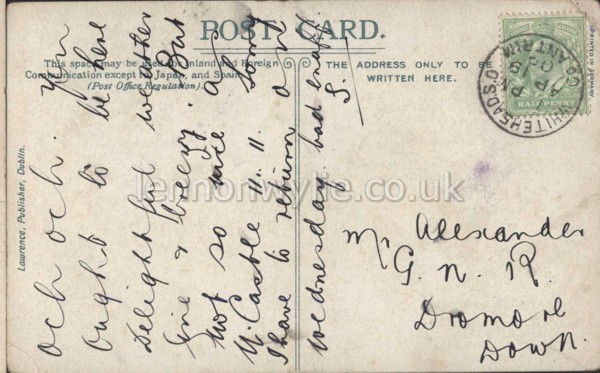 POST CARD.
This space may be used for Inland and Foreign
Communication except to Japan, and Spain.
(Post Office Regulation).
THE ADDRESS ONLY TO BE
WRITTEN HERE.
Lawrence, Publisher, Dublin.
och och. You
ought to be here
Delightful weather
fine & breezy. But
not so nice as
N. Castle "." Sorry
I have to return on
Wednesday. bad enuff.
S.
Mr Alexander
G. N. R.
Dromore
Down.
HALF PENNY
WHITEHEAD S.O.
CO ANTRIM
AP 19
PRINTED IN GERMANY
lennonwylie.co.uk